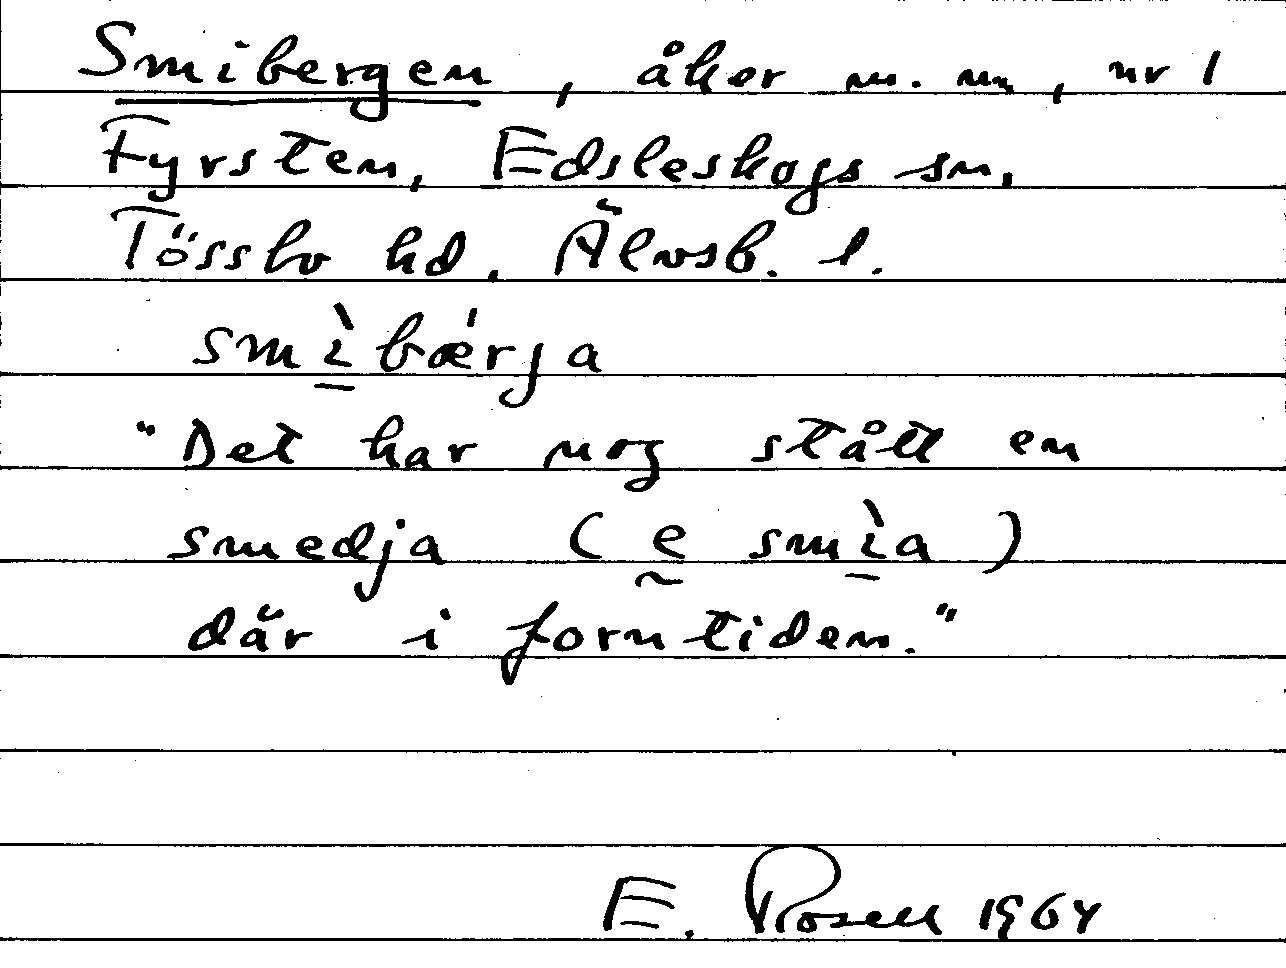 Smibergen, åker m. m., nr 1
Fyrsten, Edsleskogs sn,
Tössbo hd. Älvsb. l.
smì̠bǽrja
"Det har nog stått en
smedja (ḛ smì̠a)
där i forntiden."
E. Rosell 1964